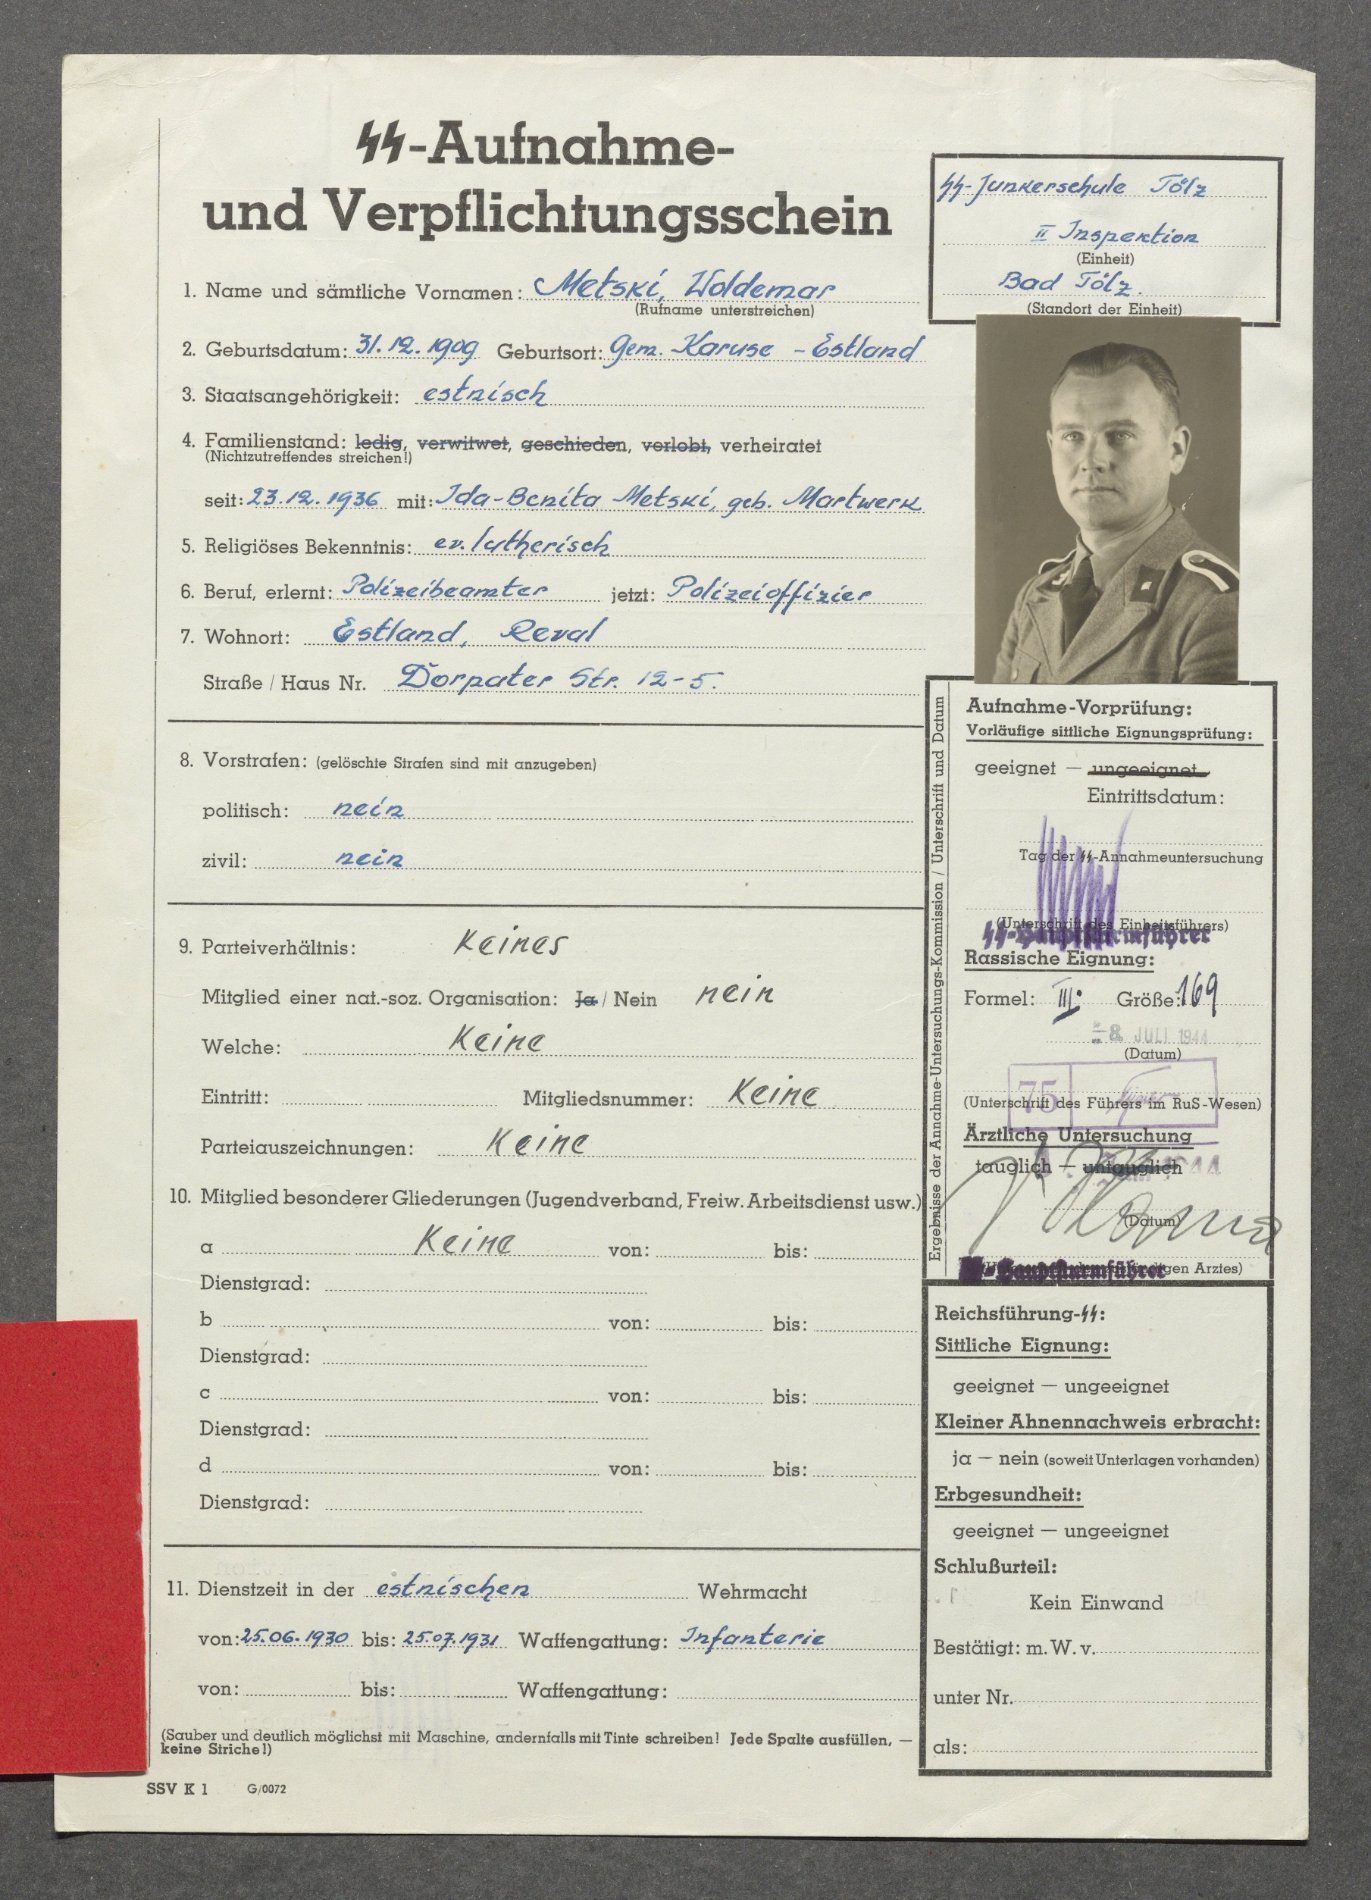 SS-Aufnahme-
und Verpflichtungsschein
SS-Junkerschule Tölz
II Inspektion
(Einheit)
Bad Tölz.
(Standort der Einheit)
1. Name und sämtliche Vornamen: Metski, Woldemar
(Rufname unterstreichen)
2. Geburtsdatum: 31.12.1909 Geburtsort: Gem. Karuse - Estland
3. Staatsangehörigkeit: estnisch
4. Familienstand: ledig, verwitwet, geschieden, verlobt, verheiratet
(Nichtzutreffendes streichen!)
seit: 23.12.1936 mit: Ida-Benita Metski, geb. Martwerk
5. Religiöses Bekenntnis: ev. lutherisch
6. Beruf, erlernt: Polizeibeamter jetzt: Polizeioffizier
7. Wohnort: Estland, Reval
Straße / Haus Nr. Dorpater Str. 12-5.
8. Vorstrafen: (gelöschte Strafen sind mit anzugeben)
politisch: nein
zivil: nein
9. Parteiverhältnis: Keines
Mitglied einer nat.-soz. Organisation: Ja / Nein nein
Welche: Keine
Eintritt: Mitgliedsnummer: Keine
Parteiauszeichnungen: Keine
10. Mitglied besonderer Gliederungen (Jugendverband, Freiw. Arbeitsdienst usw.)
a Keine von: bis:
Dienstgrad:
b von: bis:
Dienstgrad:
c von: bis:
Dienstgrad:
d von: bis:
Dienstgrad:
11. Dienstzeit in der estnischen Wehrmacht
von: 25.06.1930 bis: 25.07.1931 Waffengattung: Infanterie
von: bis: Waffengattung:
(Sauber und deutlich möglichst mit Maschine, andernfalls mit Tinte schreiben! Jede Spalte ausfüllen, —
keine Striche!)
SSV K 1 G/0072
Ergebnisse der Annahme-Untersuchungs-Kommission / Unterschrift und Datum
Aufnahme-Vorprüfung:
Vorläufige sittliche Eignungsprüfung:
geeignet — ungeeignet
Eintrittsdatum:
Tag der SS-Annahmeuntersuchung
(Unterschrift des Einheitsführers)
SS-Hauptsturmführer
Rassische Eignung:
Formel: III. Größe: 169
-8. JULI 1944
(Datum)
75
(Unterschrift des Führers im RuS-Wesen)
Ärztliche Untersuchung
tauglich — untauglich
1944
(Datum)
SS-Hauptsturmführer
Arztes)
Reichsführung-SS:
Sittliche Eignung:
geeignet — ungeeignet
Kleiner Ahnennachweis erbracht:
ja — nein (soweit Unterlagen vorhanden)
Erbgesundheit:
geeignet — ungeeignet
Schlußurteil:
Kein Einwand
Bestätigt: m. W. v.
unter Nr.
als: